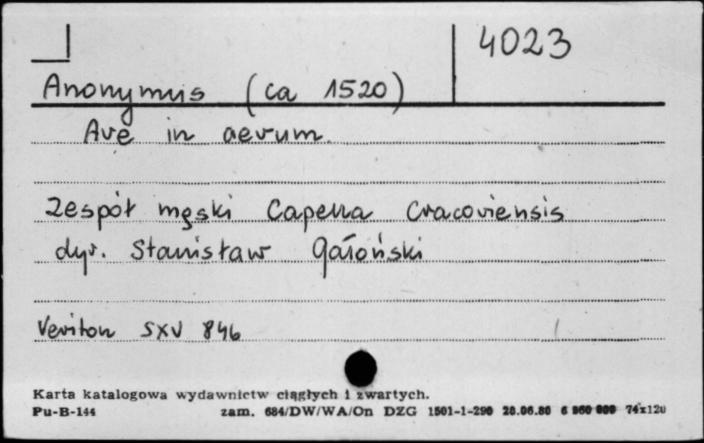 4023
Anonymus (ca 1520)
Ave in aevum
Zespół męski Capella Cracoviensis
dyr. Stanisław Gałoński
Veriton SXV 846
Karta katalogowa wydawnictw ciągłych i zwartych.
Pu-B-144 zam. 684/DW/WA/On DZG 1501-1-290 20.06.80 6 960 000 74x120